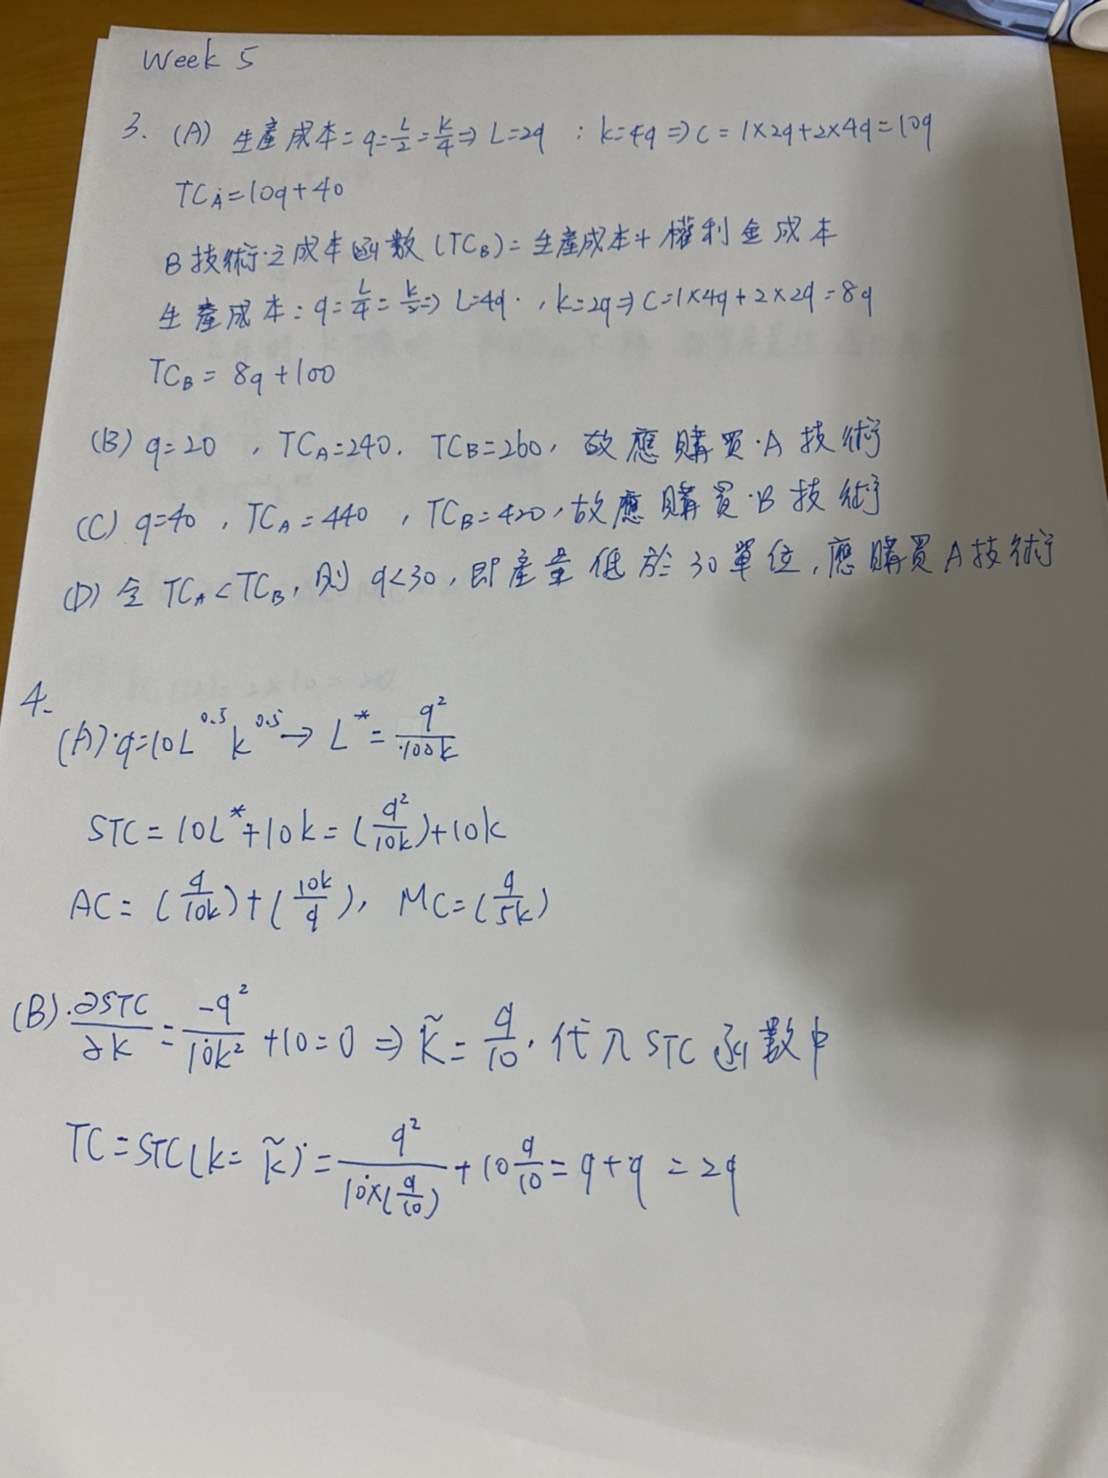 Week 5
3. (A) 生產成本= q=L/2=k/4⇒ L=2q ; k=4q ⇒ C=1×2q+2×4q=10q
TCA=10q+40
B技術之成本函數(TCB)=生產成本+權利金成本
生產成本:q=L/4=k/2⇒ L=4q , k=2q⇒C=1×4q+2×2q=8q
TCB=8q+100
(B) q=20 , TCA=240. TCB=260, 故應購買A技術
(C) q=40 , TCA=440 , TCB=420, 故應購買B技術
(D) 令 TCA<TCB, 則 q<30, 即產量低於30單位, 應購買A技術
4.
(A) q=10L^0.5 k^0.5→ L*=q²/100k
STC=10L*+10k=(q²/10k)+10k
AC=(q/10k)+(10k/q), MC=(q/5k)
(B). ∂STC/∂k=-q²/10k²+10=0 ⇒ k̃=q/10, 代入STC函數中
TC=STC(k=k̃)=q²/10×(q/10)+10q/10=q+q=2q